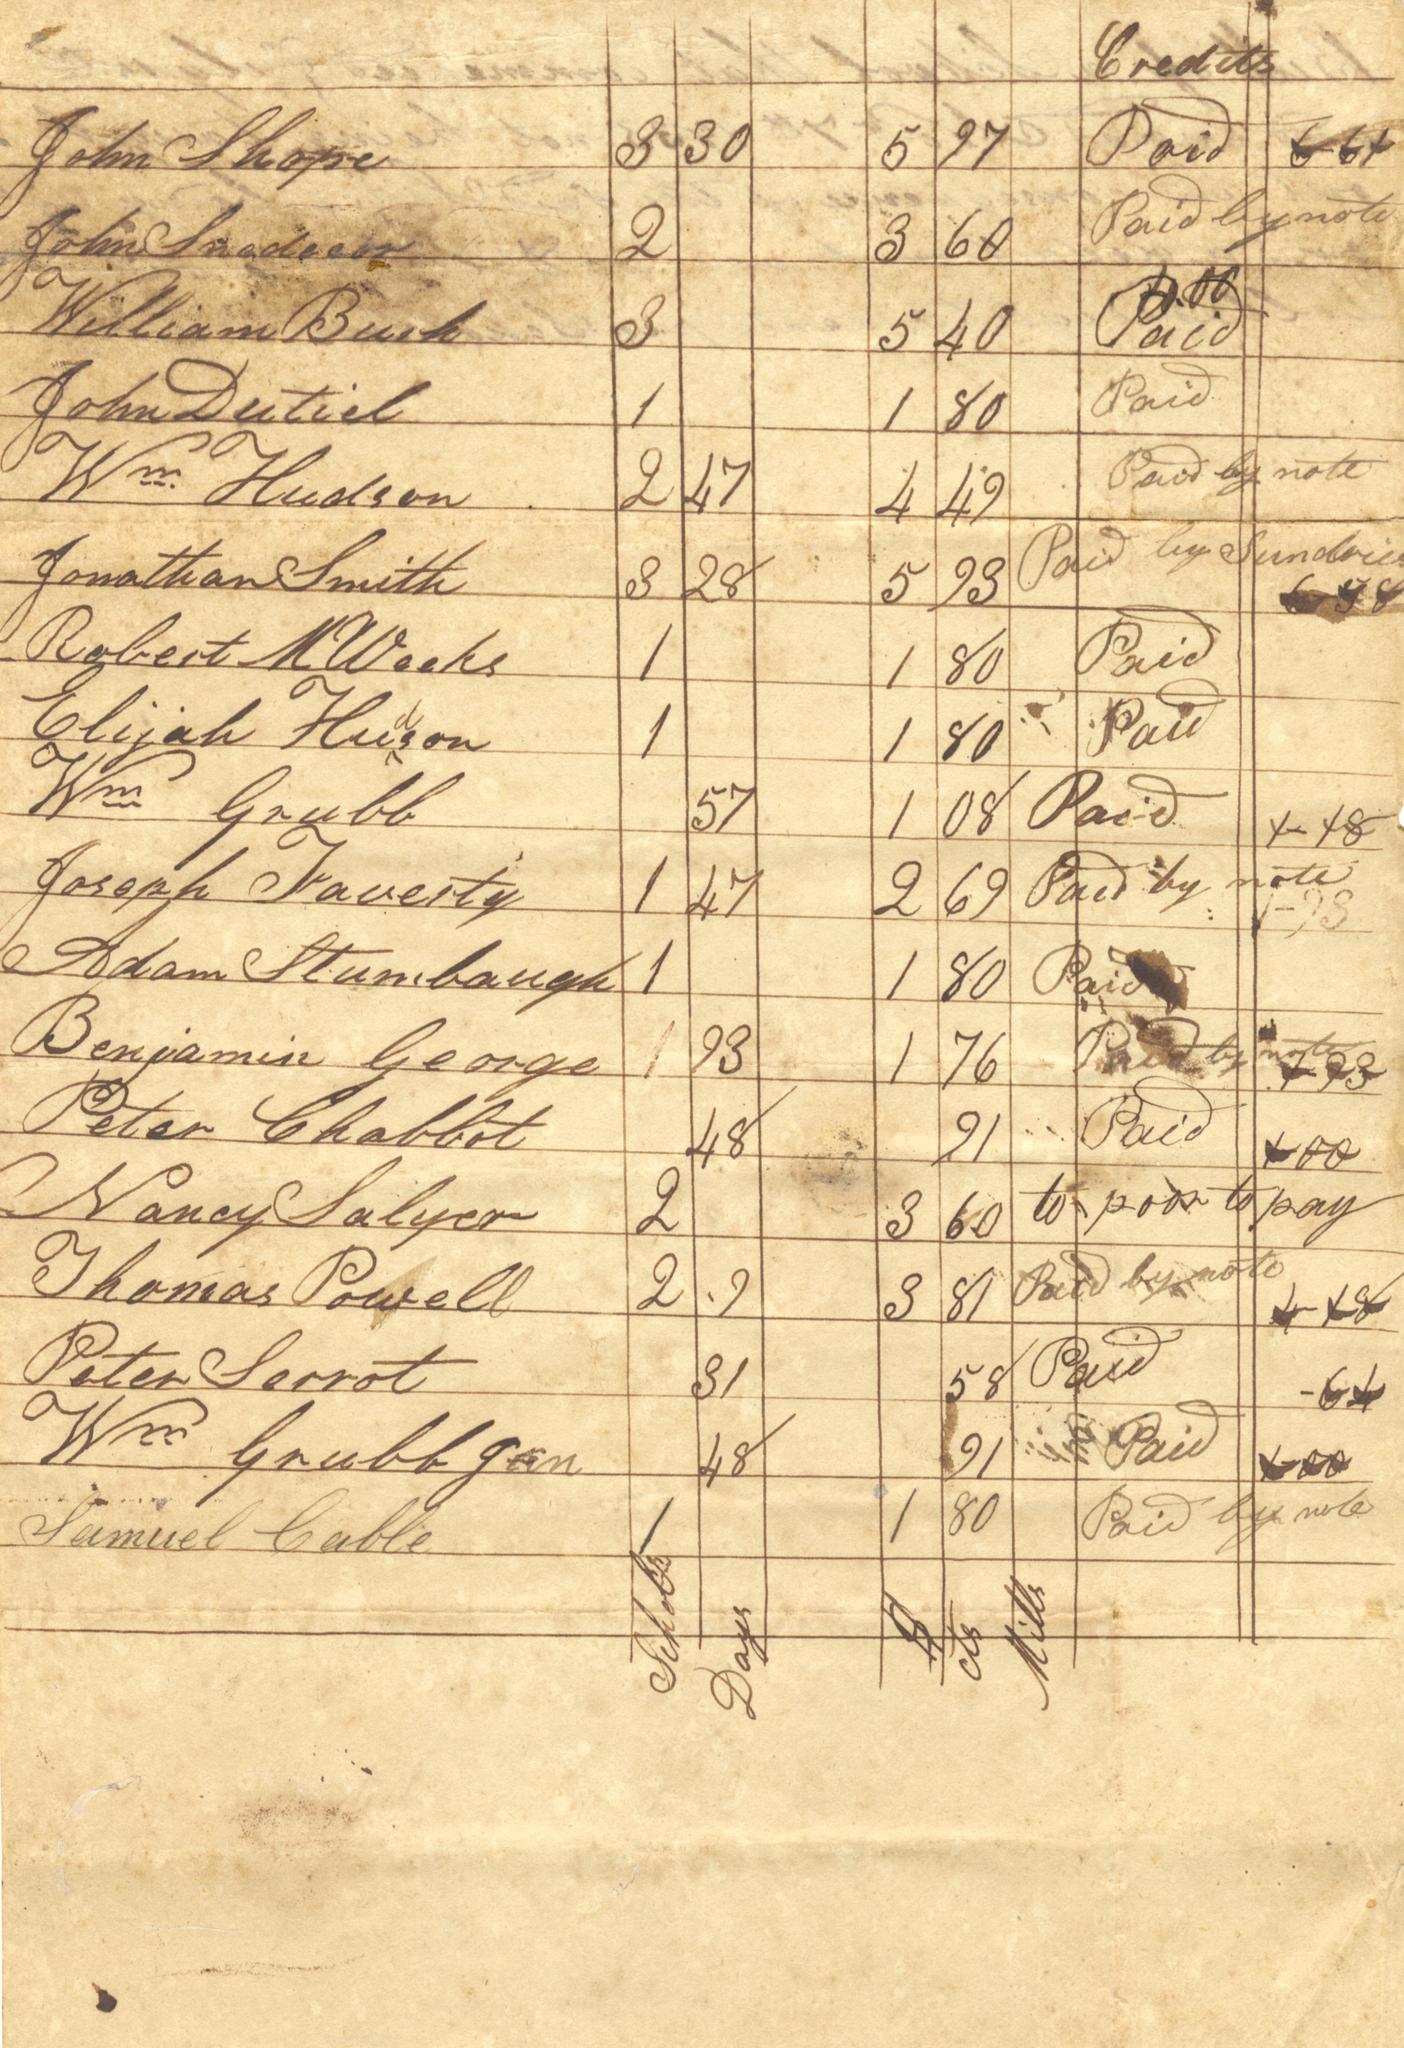 Credits
John Shope 3 30 5 97 Paid 6 64
John Snedecor 2 3 60 Paid by note
William Bush 3 5 40 Paid
John Deitiel 1 1 80 Paid
Wm Hudson 2 47 4 49 Paid by note
Jonathan Smith 3 28 5 93 Paid by Sundries
Robert M Weeks 1 1 80 Paid
Elijah Hudson 1 1 80 Paid
Wm Grubb 57 1 08 Paid
Joseph Faverty 1 47 2 69 Paid by note
Adam Stumbaugh 1 1 80 Paid
Benjamin George 1 93 1 76 Paid by note
Peter Chabbot 48 91 Paid
Nancy Salyer 2 3 60 to poor to pay
Thomas Powell 2 .9 3 81 Paid by note
Peter Serrot 31 58 Paid -64
Wm Grubb Jun 48 91 Paid
Samuel Cable 1 1 80 Paid by note
Schols Days $ cts Mills